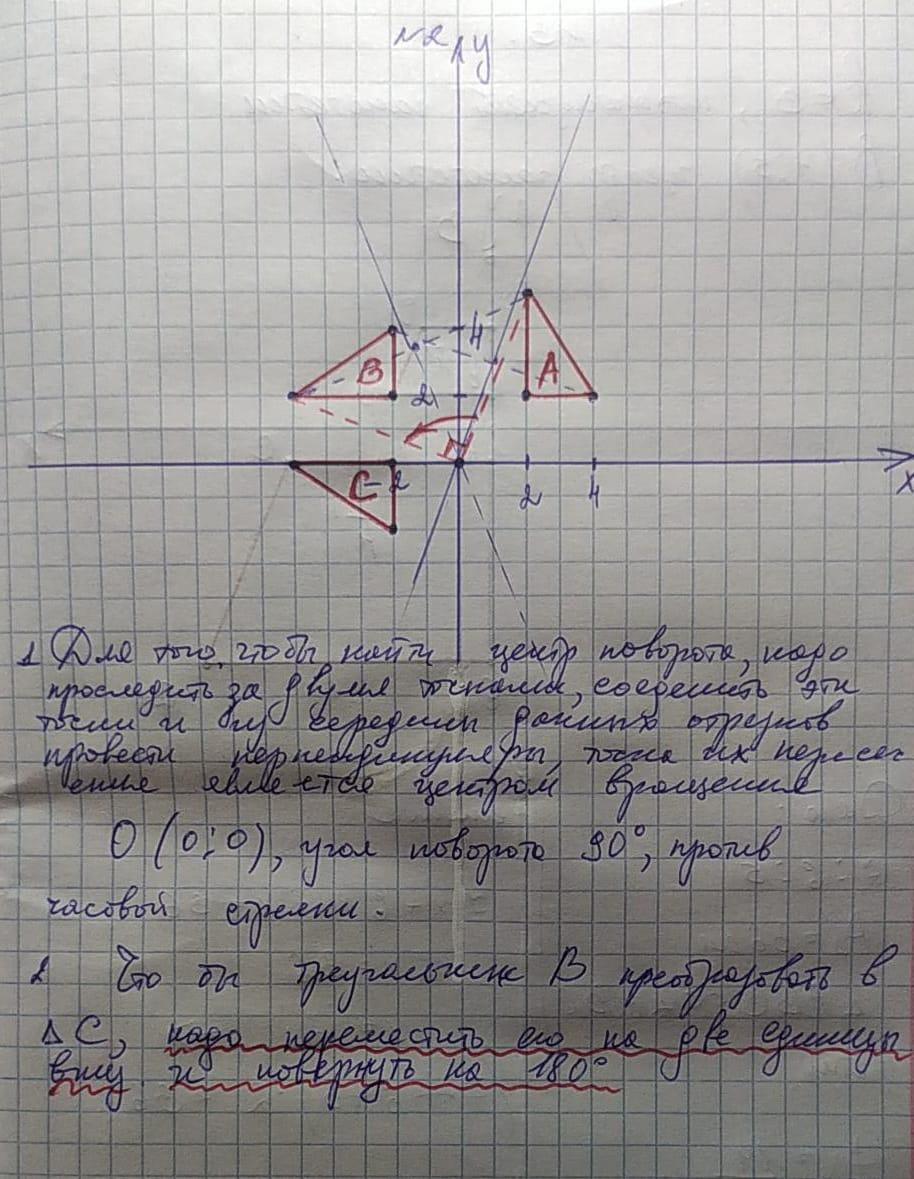 №2 y
4
B
A
2
C -2
2 4
x
1 Для того, чтобы найти центр поворота, надо
проследить за двумя точками, соединить эти
точки и из середины данных отрезков
провести перпендикуляры, точка их пересеч
ения является центром вращения
O (0;0), угол поворота 90°, против
часовой стрелки.
2 Что бы треугольник B преобразовать в
ΔC, надо переместить его на две единицы
вниз и повернуть на 180°